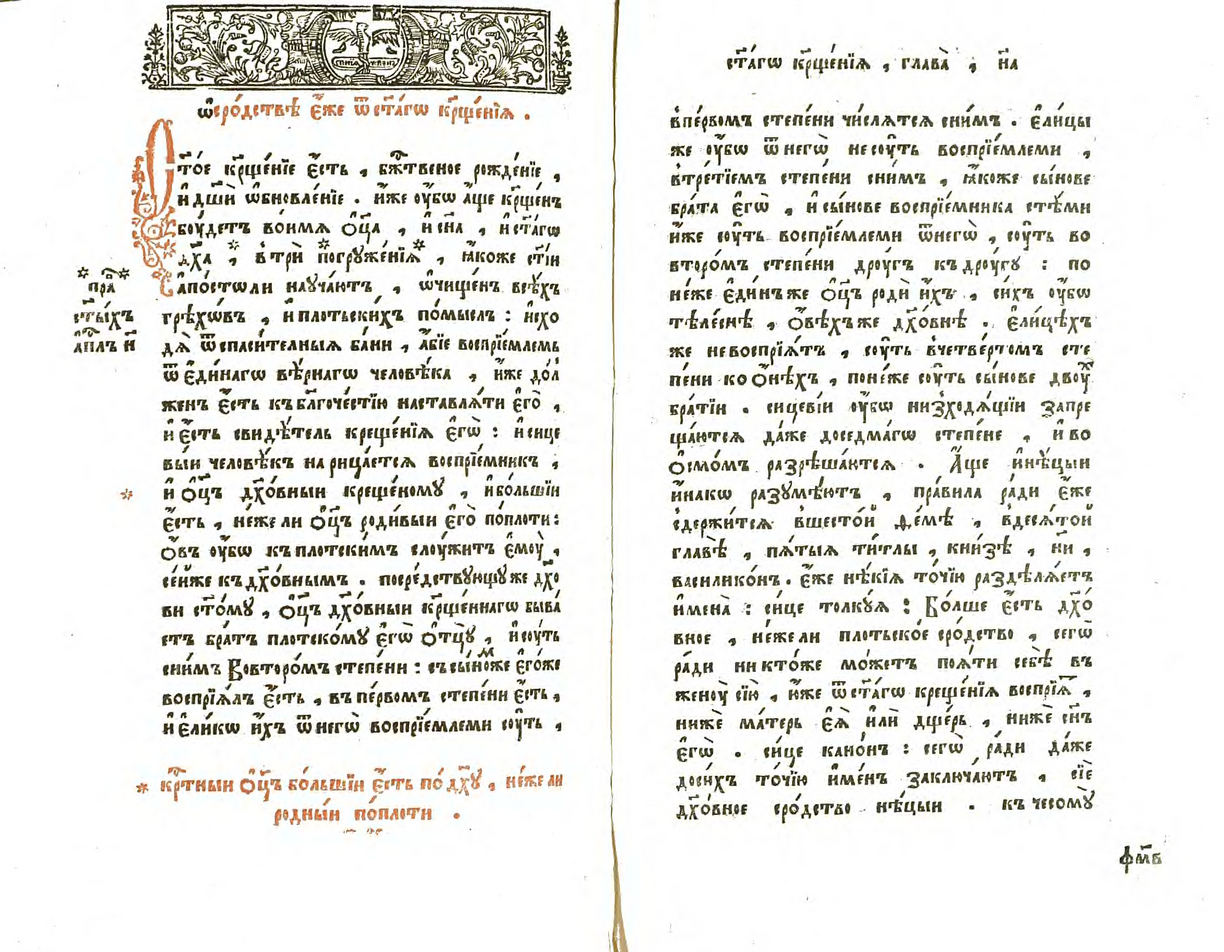 ѡ҆сро́дствѣ є҆́же ѿст҃а́гѡ кр҃ще́нїѧ .
Ст҃о́е кр҃ще́нїе є҆́сть , бж҃твеное рожде́нїе ,
и҆ дш҃и ѡ҆бновле́нїе . и҆́же ѹ҆́бѡ а҆́ще кр҃ще́нъ
бѹ́детъ воимѧ ѻ҆ц҃а , и҆ сн҃а , и҆ ст҃а́гѡ
дх҃а * , втрѝ * погруже́нїѧ * , ꙗ҆́коже ст҃їи
а҆по́столи наѹча́ютъ , ѡ҆чище́нъ всѣ́хъ
* пра҃ *
ст҃ы́хъ
а҆пл҃ъ и҃
грѣхѡ́въ , и҆ плотьскихъ по́мыслъ : исхо
дѧ́ ѿспаси́телныѧ ба́ни , а҆́бїе воспрїе́млемь
ѿ є҆ди́нагѡ вѣ́рнагѡ человѣ́ка , и҆́же до́л
женъ є҆́сть къ бл҃гоче́стїю наставлѧ́ти є҆го̀ ,
и҆ є҆́сть свидѣ́тель креще́нїѧ є҆гѡ̀ : и҆ сице
выи человѣ́къ нарица́ется воспрїе́мникъ ,
*
и҆ ѻ҆ц҃ъ дх҃о́вныи креще́ному , и҆ бо́льшїи
є҆́сть , не́же ли ѻ҆ц҃ъ роди́выи є҆го̀ по пло́ти :
ѻ҆́въ ѹ҆́бѡ къ пло́тскимъ слѹ́житъ є҆мѹ̀ ,
се́йже къ дх҃о́внымъ . посре́дствующу же дх҃о
ви ст҃о́му , ѻ҆ц҃ъ дх҃о́вныи кр҃ще́ннагѡ быва́
етъ бра́тъ пло́тскому є҆гѡ̀ ѻ҆тцу̀ , и҆ сѹ́ть
сни́мъ Вовторо́мъ сте́пени : съ сы́номже є҆го́же
воспрїѧ́лъ є҆́сть , въ пе́рвомъ сте́пени є҆́сть ,
и҆ є҆ли́кѡ и҆́хъ ѿнегѡ̀ воспрїе́млеми сѹ́ть ,
* кр҃тныи ѻ҆ц҃ъ бо́льшїи є҆́сть по дх҃у , не́же ли
ро́дныи по пло́ти .
ст҃а́гѡ кр҃ще́нїѧ , глава̀ , н҃а
впе́рвомъ сте́пени чи́слѧтсѧ сни́мъ . Є҆ли́цы
же ѹ҆́бѡ ѿнегѡ̀ не сѹ́ть воспрїе́млеми ,
втре́тїемъ сте́пени сни́мъ , ꙗ҆́коже сы́нове
бра́та є҆гѡ̀ , и҆ сы́нове воспрїе́мника стѣ́ми
и҆́же сѹ́ть воспрїе́млеми ѿнегѡ̀ , сѹ́ть во
второ́мъ сте́пени дрѹ́гъ къ дрѹ́гу : по
не́же є҆ди́нъ же ѻ҆ц҃ъ родѝ и҆́хъ , си́хъ ѹ҆́бѡ
тѣле́снѣ , ѻ҆́вѣхъ же дх҃о́внѣ . Є҆ли́цѣхъ
же не воспрїѧ́тъ , сѹ́ть вчетве́ртомъ сте
пени ко ѻ҆нѣ́хъ , поне́же сѹ́ть сы́нове двоѹ̀
бра́тїи . сицевїи ѹ҆́бѡ низходѧ́щїи запре
ща́ютсѧ да́же до седма́гѡ сте́пене , и҆ во
ѻ҆смо́мъ разрѣша́ютсѧ . А҆́ще и҆нѣ́цыи
и҆́накѡ разумѣ́ютъ , пра́вила ра́ди є҆́же
сдержи́тсѧ вшесто́й фе́мѣ , вдесѧ́той
главѣ̀ , пѧ́тыѧ ти́тлы , кни́зѣ , к҃и ,
василико́нъ . є҆́же нѣ́кїѧ то́чїю раздѣлѧ́етъ
и҆мена̀ : си́це толку́ѧ : Бо́лше є҆́сть дх҃о́
вное , не́же ли плотьско́е сро́дство , сегѡ̀
ра́ди никто́же мо́жетъ поѧ́ти себѣ̀ въ
женѹ̀ сїю̀ , ю҆́же ѿст҃а́гѡ креще́нїѧ воспрїѧ̀ ,
нижѐ ма́терь є҆ѧ̀ и҆лѝ дще́рь , нижѐ сн҃ъ
є҆гѡ̀ . си́це кано́нъ : сегѡ̀ ра́ди да́же
доси́хъ то́чїю и҆ме́нъ заключа́ютъ , сїѐ
дх҃о́вное сро́дство нѣ́цыи . къ чесому̀
фм҃в